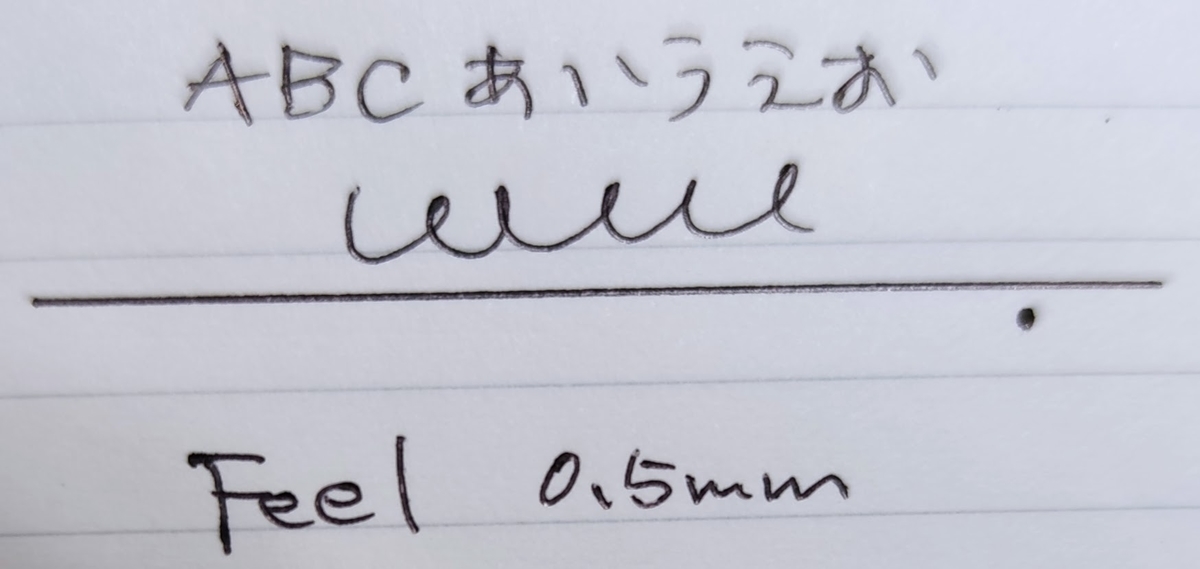 ABCあいうえお
Feel 0.5mm